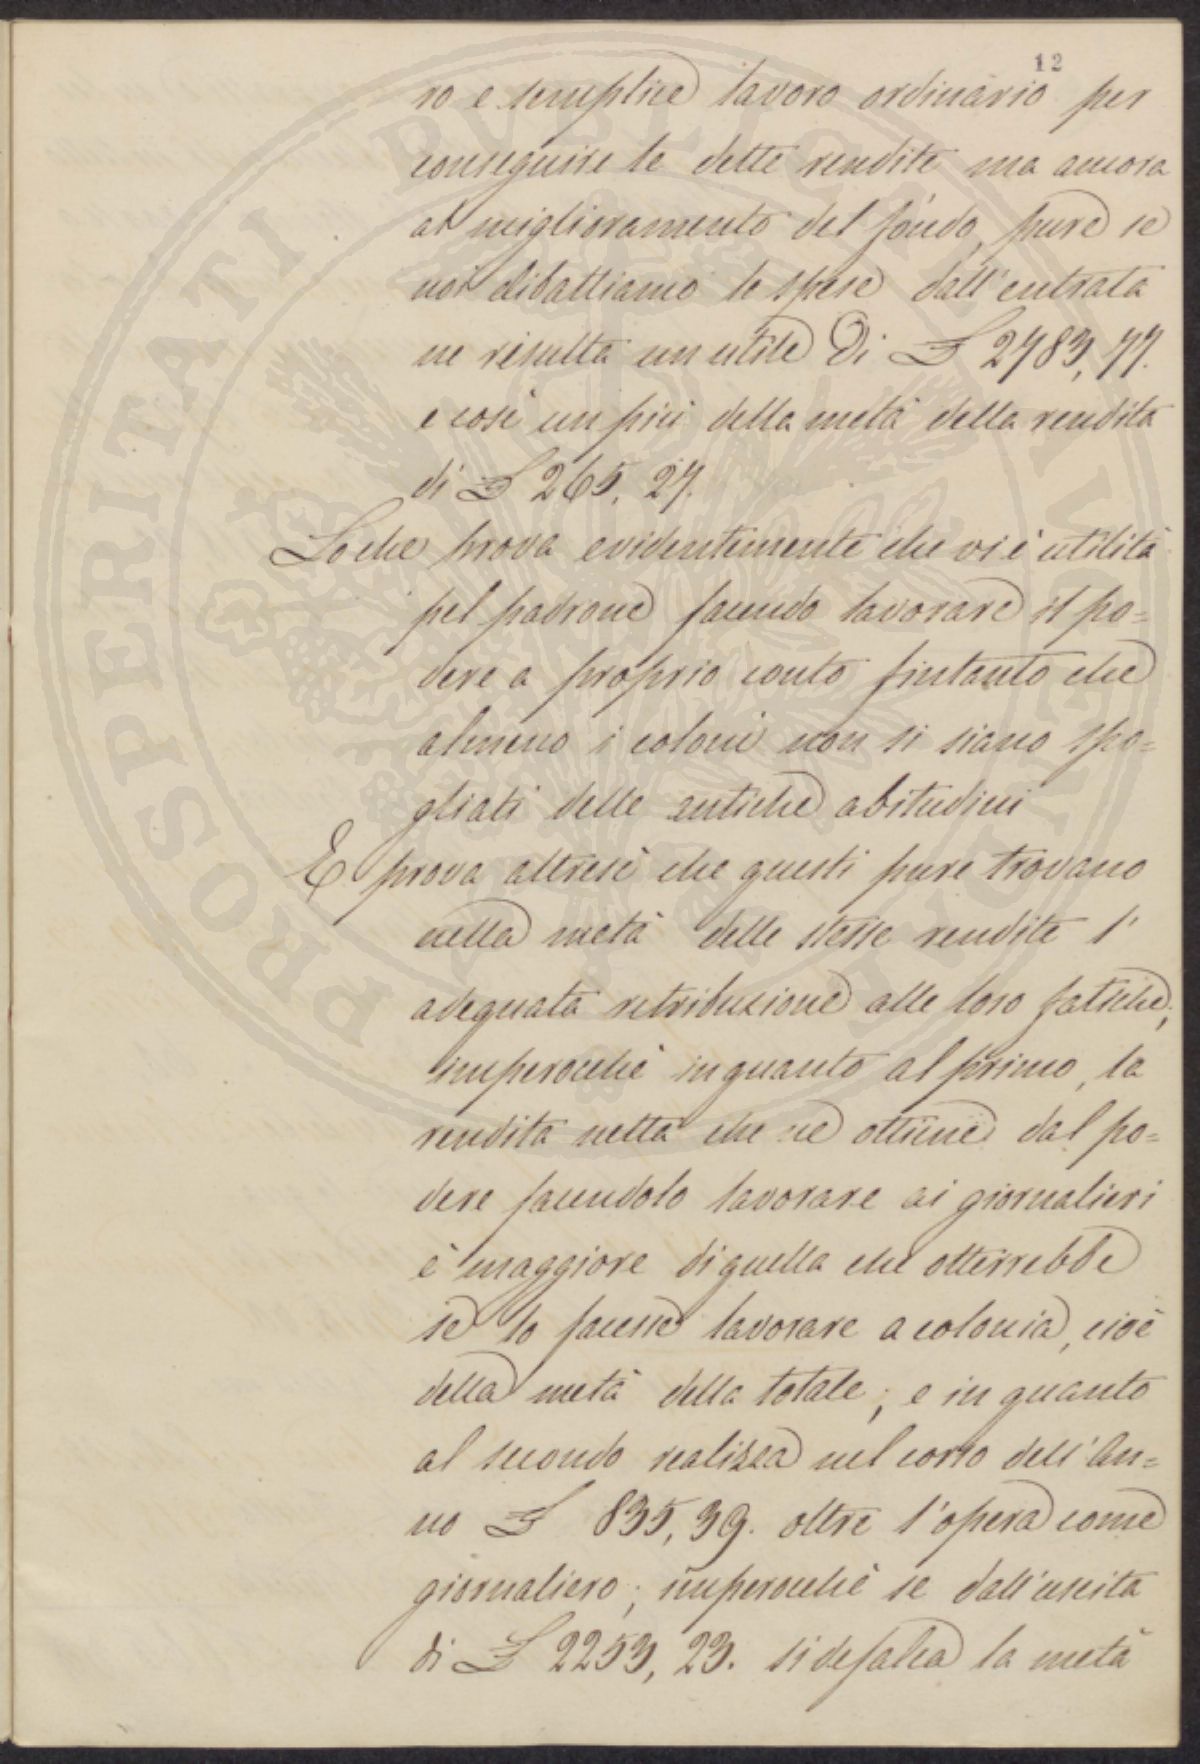 12
ro e semplice lavoro ordinario per
conseguire le dette rendite ma ancora
al miglioramento del fondo, pure se
noi dibattiamo le spese dall'entrata
ne risulta un utile di £ 2783,77.
e così un più della metà della rendita
di £ 265, 27.
Loche prova evidentemente che vi è utilità
pel padrone facendo lavorare il po=
dere a proprio conto fintanto che
almeno i coloni non si siano spo=
gliati delle antiche abitudini
E prova altresì che questi pure trovano
nella metà delle stesse rendite l'
adeguata retribuzione alle loro fatiche;
imperocchè in quanto al primo, la
rendita netta che ne ottiene dal po=
dere facendolo lavorare ai giornalieri
è maggiore di quella che otterrebbe
se lo facesse lavorare a colonia, cioè
della metà della totale; e in quanto
al secondo realizza nel corso dell'an=
no £ 835, 39. oltre l'opera come
giornaliero; imperocchè se dall'uscita
di £ 2253, 23. si defalca la metà
PROSPERITATI PUBLICAE AUGENDAE